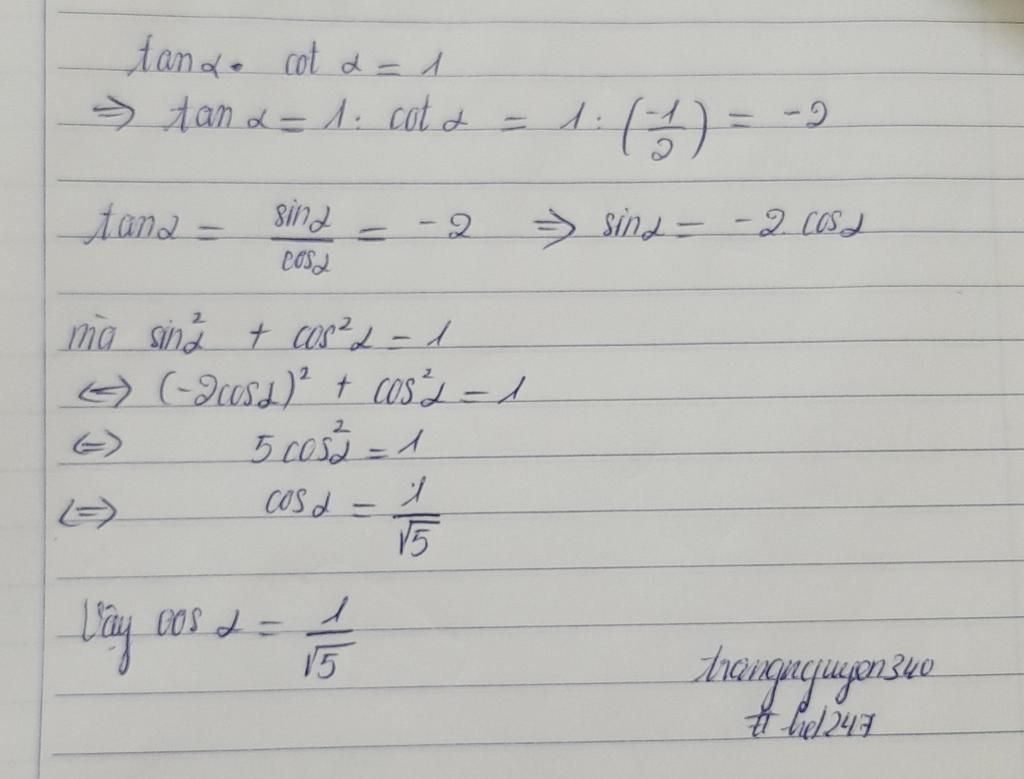 tanα . cot α = 1
⇒ tan α = 1 : cot α = 1 : (-1/2) = -2
tanα = sinα/cosα = -2 ⇒ sinα = -2. cosα
mà sin²α + cos²α = 1
⇔ (-2cosα)² + cos²α = 1
⇔ 5cos²α = 1
⇔ cosα = 1/√5
Vậy cos α = 1/√5
trangnguyen340